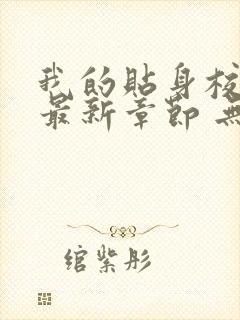 我的貼身校
最新章節 無
綰紫彤